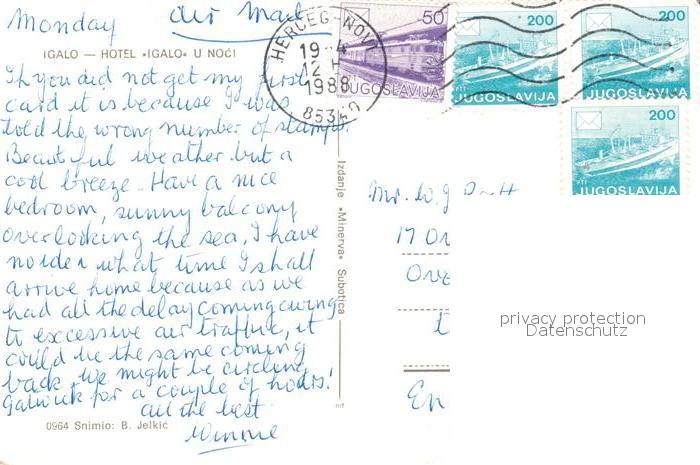 Monday
Air Mail
IGALO — HOTEL »IGALO« U NOĆI
If you did not get my first
card it is because I was
told the wrong number of stamps.
Beautiful weather but a
cool breeze. Have a nice
bedroom, sunny balcony
overlooking the sea, I have
no idea what time I shall
arrive home because as we
had all the delay coming owing
to excessive air traffic, it
could be the same coming
back. We might be circling
Gatwick for a couple of hours!
all the best
Winnie
0964 Snimio: B. Jelkić
Izdanje »Minerva« Subotica
HERCEG-NOVI
19-4
12 H
1988
85340
50
JUGOSLAVIJA
200
JUGOSLAVIJA
200
JUGOSLAVIJA
200
JUGOSLAVIJA
Mr. W. J
17
En
privacy protection
Datenschutz